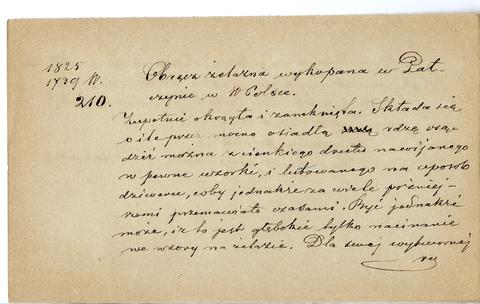 1825
1739 W.
210.
Obręcz żelazna wykopana w Pat-
czynie w W Polsce.
Zupełnie okrągła i zamknięta. Składa się
o ile przez mocno osiadłą rdzą osą-
dzić można z cienkiego drutu nawijanego
w pewne wzorki, i lutowanego na sposób
dziwaru, coby jednakże za wiele później-
szemi przemawiało czasami. Być jednakże
może, iż to jest głębokie tylko nacinanie
we wzory na żelazie. Dla swej wytwornej